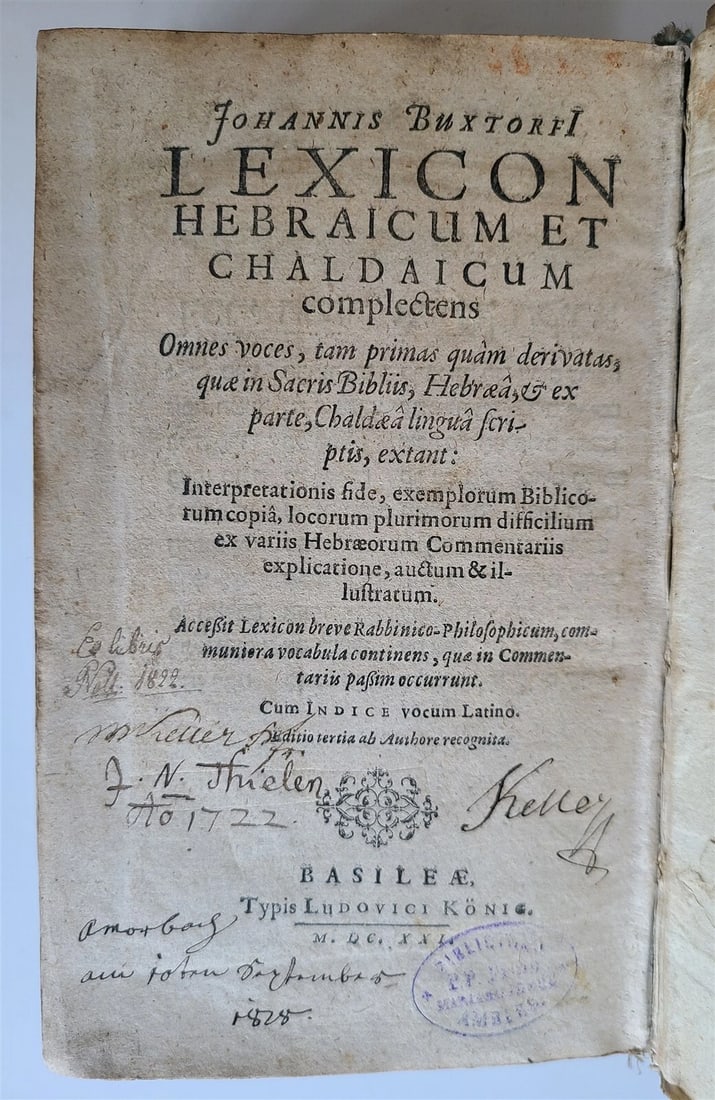 JOHANNIS BUXTORFI
LEXICON
HEBRAICUM ET
CHALDAICUM
complectens
Omnes voces, tam primas quàm derivatas,
quæ in Sacris Bibliis, Hebræâ, & ex
parte, Chaldæâ linguâ ſcri-
ptis, extant:
Interpretationis fide, exemplorum Biblico-
rum copiâ, locorum plurimorum difficilium
ex variis Hebræorum Commentariis
explicatione, auctum & il-
luſtratum.
Acceßit Lexicon breve Rabbinico-Philoſophicum, com-
muniora vocabula continens, quæ in Commen-
tariis paßim occurrunt.
Cum INDICE vocum Latino.
Editio tertia ab Authore recognita.
Ex libris
1822.
Keller
J. N. Thielen
Aõ 1722.
Keller
BASILEÆ,
Typis LUDOVICI KÖNIG.
M. DC. XXI.
Amorbach
am 10ten September
1828.